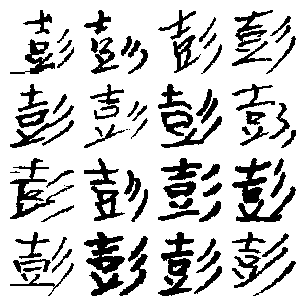 彭彭彭彭
彭彭彭彭
彭彭彭彭
彭彭彭彭